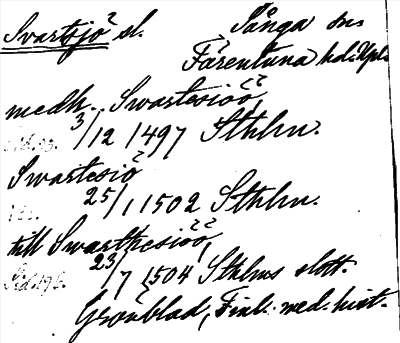 Svartsjö sl. Sånga sn.
Färentuna hd. Upl.
medh. Swartesiöö,
3/12 1497 Sthlm.
Swartesiö
25/1 1502 Sthlm.
till Swarthesiöö,
23/7 1504 Sthlms slott.
Grönblad, Finl. med. hist.